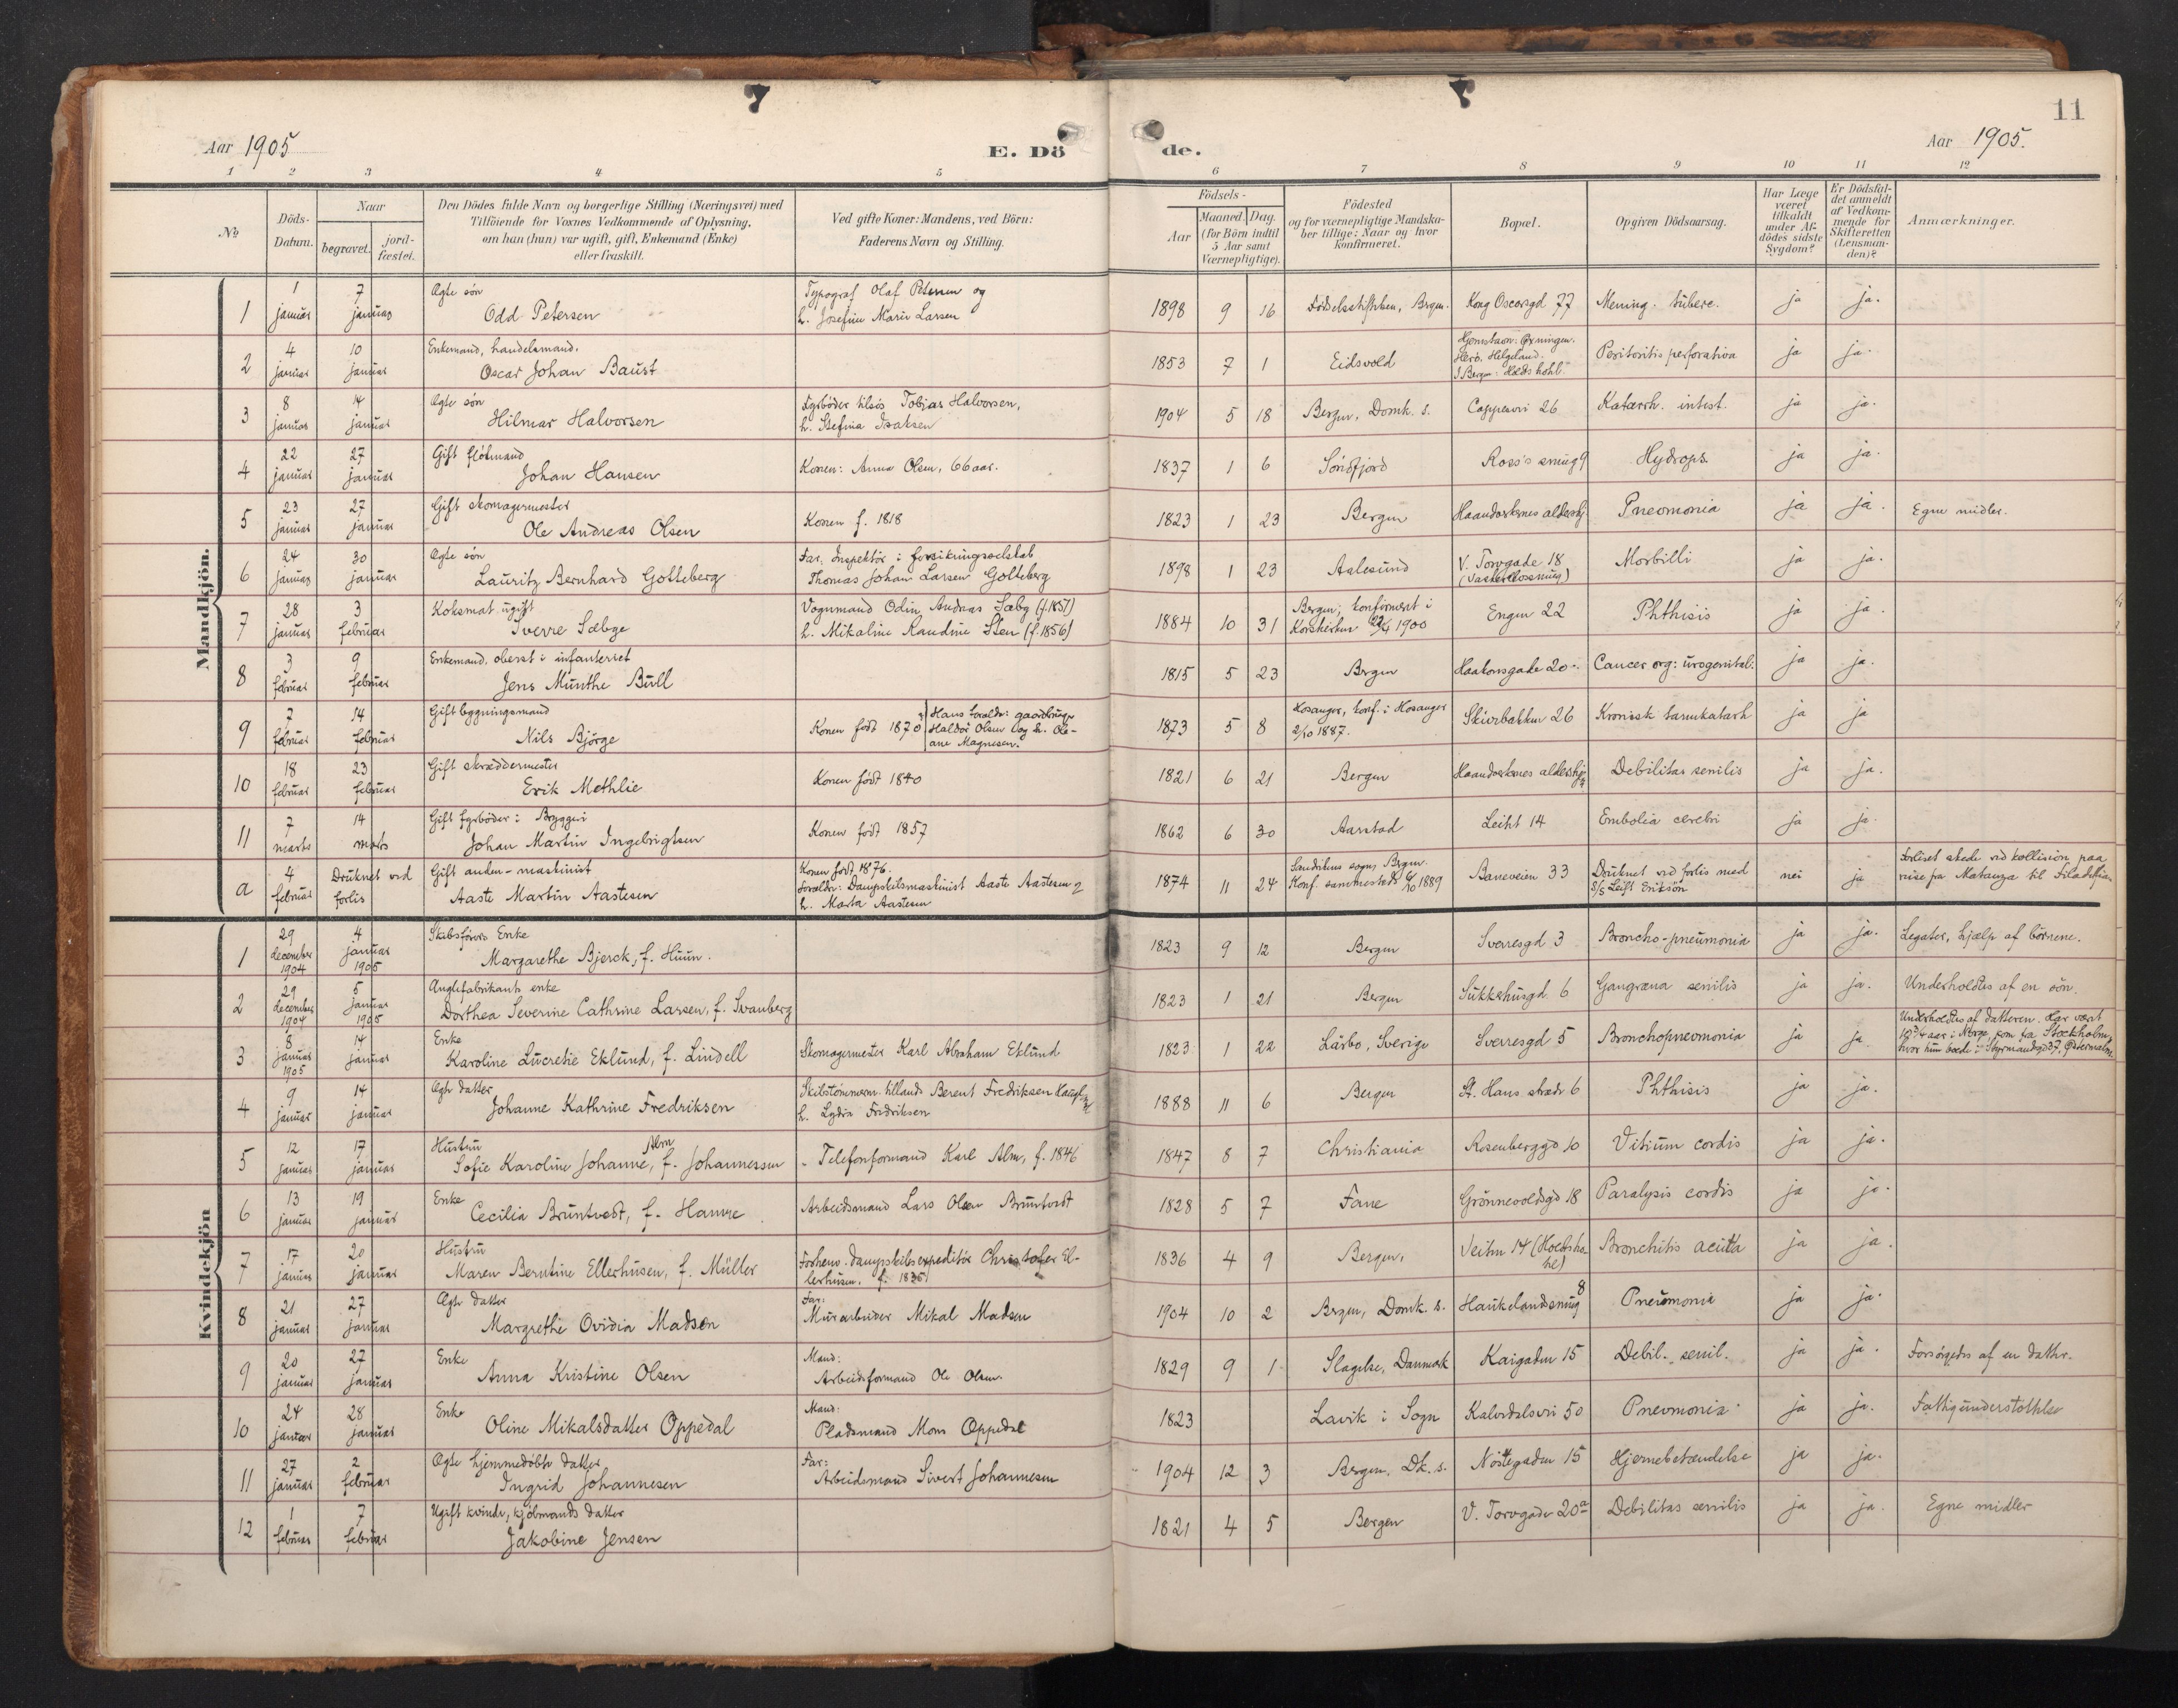 11
Aar 1905
E. Döde.
Aar 1905.
1 2 3 4 5 6 7 8 9 10 11 12
No
Döds-Datum.
Naar begravet. jordfæstet.
Den Dödes fulde Navn og borgerlige Stilling (Næringsvei) med Tilföiende for Voxnes Vedkommende af Oplysning, om han (hun) var ugift, gift, Enkemand (Enke) eller fraskilt.
Ved gifte Koner: Mandens, ved Börn: Faderens Navn og Stilling.
Födsels-
Aar Maaned. Dag. (for Börn indtil 5 Aar samt Værnepligtige).
Födested og for værnepligtige Mandskaber tillige: Naar og hvor konfirmeret.
Bopæl.
Opgiven Dödsaarsag.
Har Læge været tilkaldt under Afdödes sidste Sygdom?
Er Dödsfaldet anmeldt af Vedkommende for Skifteretten (Lensmanden)?
Anmærkninger.
Mandkjön.
1 1 januar 7 januar Ægte søn Odd Petersen Typograf Olaf Petersen og h. Josefine Marie Larsen 1898 9 16 Fødselsstiftelsen, Bergen. Kong Oscarsgd 77 Mening. tuberc. ja ja.
2 4 januar 10 januar Enkemand, handelsmand. Oscar Johan Baust 1853 7 1 Eidsvold Hjemstavn: Herö. Helgeland. I Bergen: Holdts hotel Peritonitis perforativa ja ja.
3 8 januar 14 januar Ægte søn Hilmar Halvorsen Fyrböder tilsös Tobias Halvorsen, h. Stefina Isaksen 1904 5 18 Bergen, Domk. s. Cappesvei 26 Katarrh. intest. ja ja.
4 22 januar 27 januar Gift flötmand Johan Hansen Konen: Anna Olsen, 66 aar. 1837 1 6 Söndfjord Ross's smug 9 Hydrops. ja ja.
5 23 januar 27 januar Gift skomagermester Ole Andreas Olsen Konen f. 1818 1823 1 23 Bergen Haandverkernes aldershj. Pneomonia ja ja. Egne midler.
6 24 januar 30 januar Ægte søn Lauritz Bernhard Gotteberg Far. Inspektör i forsikringsselskab Thomas Johan Larsen Gotteberg 1898 1 23 Aalesund V. Torvgade 18 Morbilli ja ja.
7 28 januar 3 februar Koksmat. ugift Sverre Sæbye Vognmand Odin Andreas Sæby (f.1857) h. Mikaline Raudine Sten (f.1856) 1884 10 31 Bergen; konfirmert i Korskirken 22/4 1900 Engen 22 Phthisis ja ja.
8 3 februar 9 februar Enkemand. oberst i infanteriet Jens Munthe Bull 1815 5 23 Bergen Haakonsgade 20 Cancer org: urogenital. ja ja.
9 7 februar 14 februar Gift bygningsmand Nils Björge Konen født 1870 Hans foreldr: gaardbruger Haldor Olsen og h. Oleane Magnesen. 1873 5 8 Hosanger, konf. i Hosanger 2/10 1887. Skivebakken 26 Kronisk tarmkatarh ja ja
10 18 februar 23 februar Gift skræddermester Erik Methlie Konen født 1840 1821 6 21 Bergen Haandverkernes aldershj. Debilitas senilis ja ja.
11 7 marts 14 marts Gift fyrböder i Bryggeri Johan Martin Ingebrigtsen Konen født 1857 1862 6 30 Aarstad Leitet 14 Embolia cerebri ja ja.
a 4 februar Druknet ved forlis Gift anden-maskinist Aaste Martin Aastesen Konen født 1876. Foreldr: Dampskibsmaskinist Aaste Aastesen og h. Marta Aastesen 1874 11 24 Sandvikens sogn, Bergen. Konf. sammesteds 6/10 1889 Baneveien 33 Druknet ved forlis med S/S Leift Eriksön nei ja Forliset skede ved kollision paa reise fra Matanza til Filadelfia
Kvindekjön
1 29 december 1904 4 januar 1905 Skibsförers Enke Margarethe Bjerck, f. Huun. 1823 9 12 Bergen Sverresgd 3 Broncho-pneumonia ja ja. Legater, hjælp af börnene.
2 29 december 1904 5 januar 1905 Anglefabrikants enke Dorthea Severine Cathrine Larsen, f. Svanberg 1823 1 21 Bergen Sukkerhusgd. 6 Gangræna senilis ja ja. Underholdtes af en sön.
3 8 januar 1905 14 januar Enke Karoline Lucretie Eklund, f. Lindell Skomagermester Karl Abraham Eklund 1823 1 22 Lärbo, Sverige Sverresgd 5 Bronchopneomonia ja ja Underholdtes af datteren. Har vært 10 3/4 aar i Norge, kom fra Stockholm, hvor hun boede i Styrmandsgd 37, Østermalm.
4 9 januar 14 januar Ægte datter Johanne Kathrine Fredriksen Skibstömmerm. tillands Berent Fredriksen h. Lydia Fredriksen 1888 11 6 Bergen St. Hans stræde 6 Phthisis ja ja.
5 12 januar 17 januar Hustru Sofie Karoline Johanne Alm, f. Johannessen Telefonformand Karl Alm, f. 1846 1847 8 7 Christiania Rosenberggd 10 Vitium cordis ja ja.
6 13 januar 19 januar Enke Cecilia Bruntvedt, f. Hamre Arbeidsmand Lars Olsen Bruntvedt 1828 5 7 Fane Grönnevoldsgd 18 Paralysis cordis ja ja.
7 17 januar 20 januar Hustru Maren Berntine Ellerhusen, f. Müller Forhenv. dampskibsexpeditör Christofer Ellerhusen. f. 1835 1836 4 9 Bergen, Veiten 14 Bronchitis acuta ja ja.
8 21 januar 27 januar Ægte datter Margrethe Ovidia Madsen Far: Murarbeider Mikal Madsen 1904 10 2 Bergen, Domk. s. Haukelandsmug 8 Pneumonia ja ja.
9 20 januar 27 januar Enke Anna Kristine Olsen Mand: Arbeidsformand Ole Olsen. 1829 9 1 Slagelse, Danmark Kaigaden 15 Debil. senil. ja ja. Forsörgedes af en datter.
10 24 januar 28 januar Enke Oline Mikalsdatter Oppedal Mand: Pladsmand Mons Oppedal 1823 Lavik i Sogn Kalvedalsvei 50 Pneumonia ja ja. Fattigunderstöttelse
11 27 januar 2 februar Ægte hjemmedöbte datter Ingrid Johannesen Far: Arbeidsmand Sivert Johannesen 1904 12 3 Bergen, Dk. s. Nöstegaden 15 Hjernebetændelse ja ja.
12 1 februar 7 februar Ugift kvinde, kjöbmands datter Jakobine Jensen 1821 4 5 Bergen V. Torvgade 20a Debilitas senilis ja ja. Egne midler